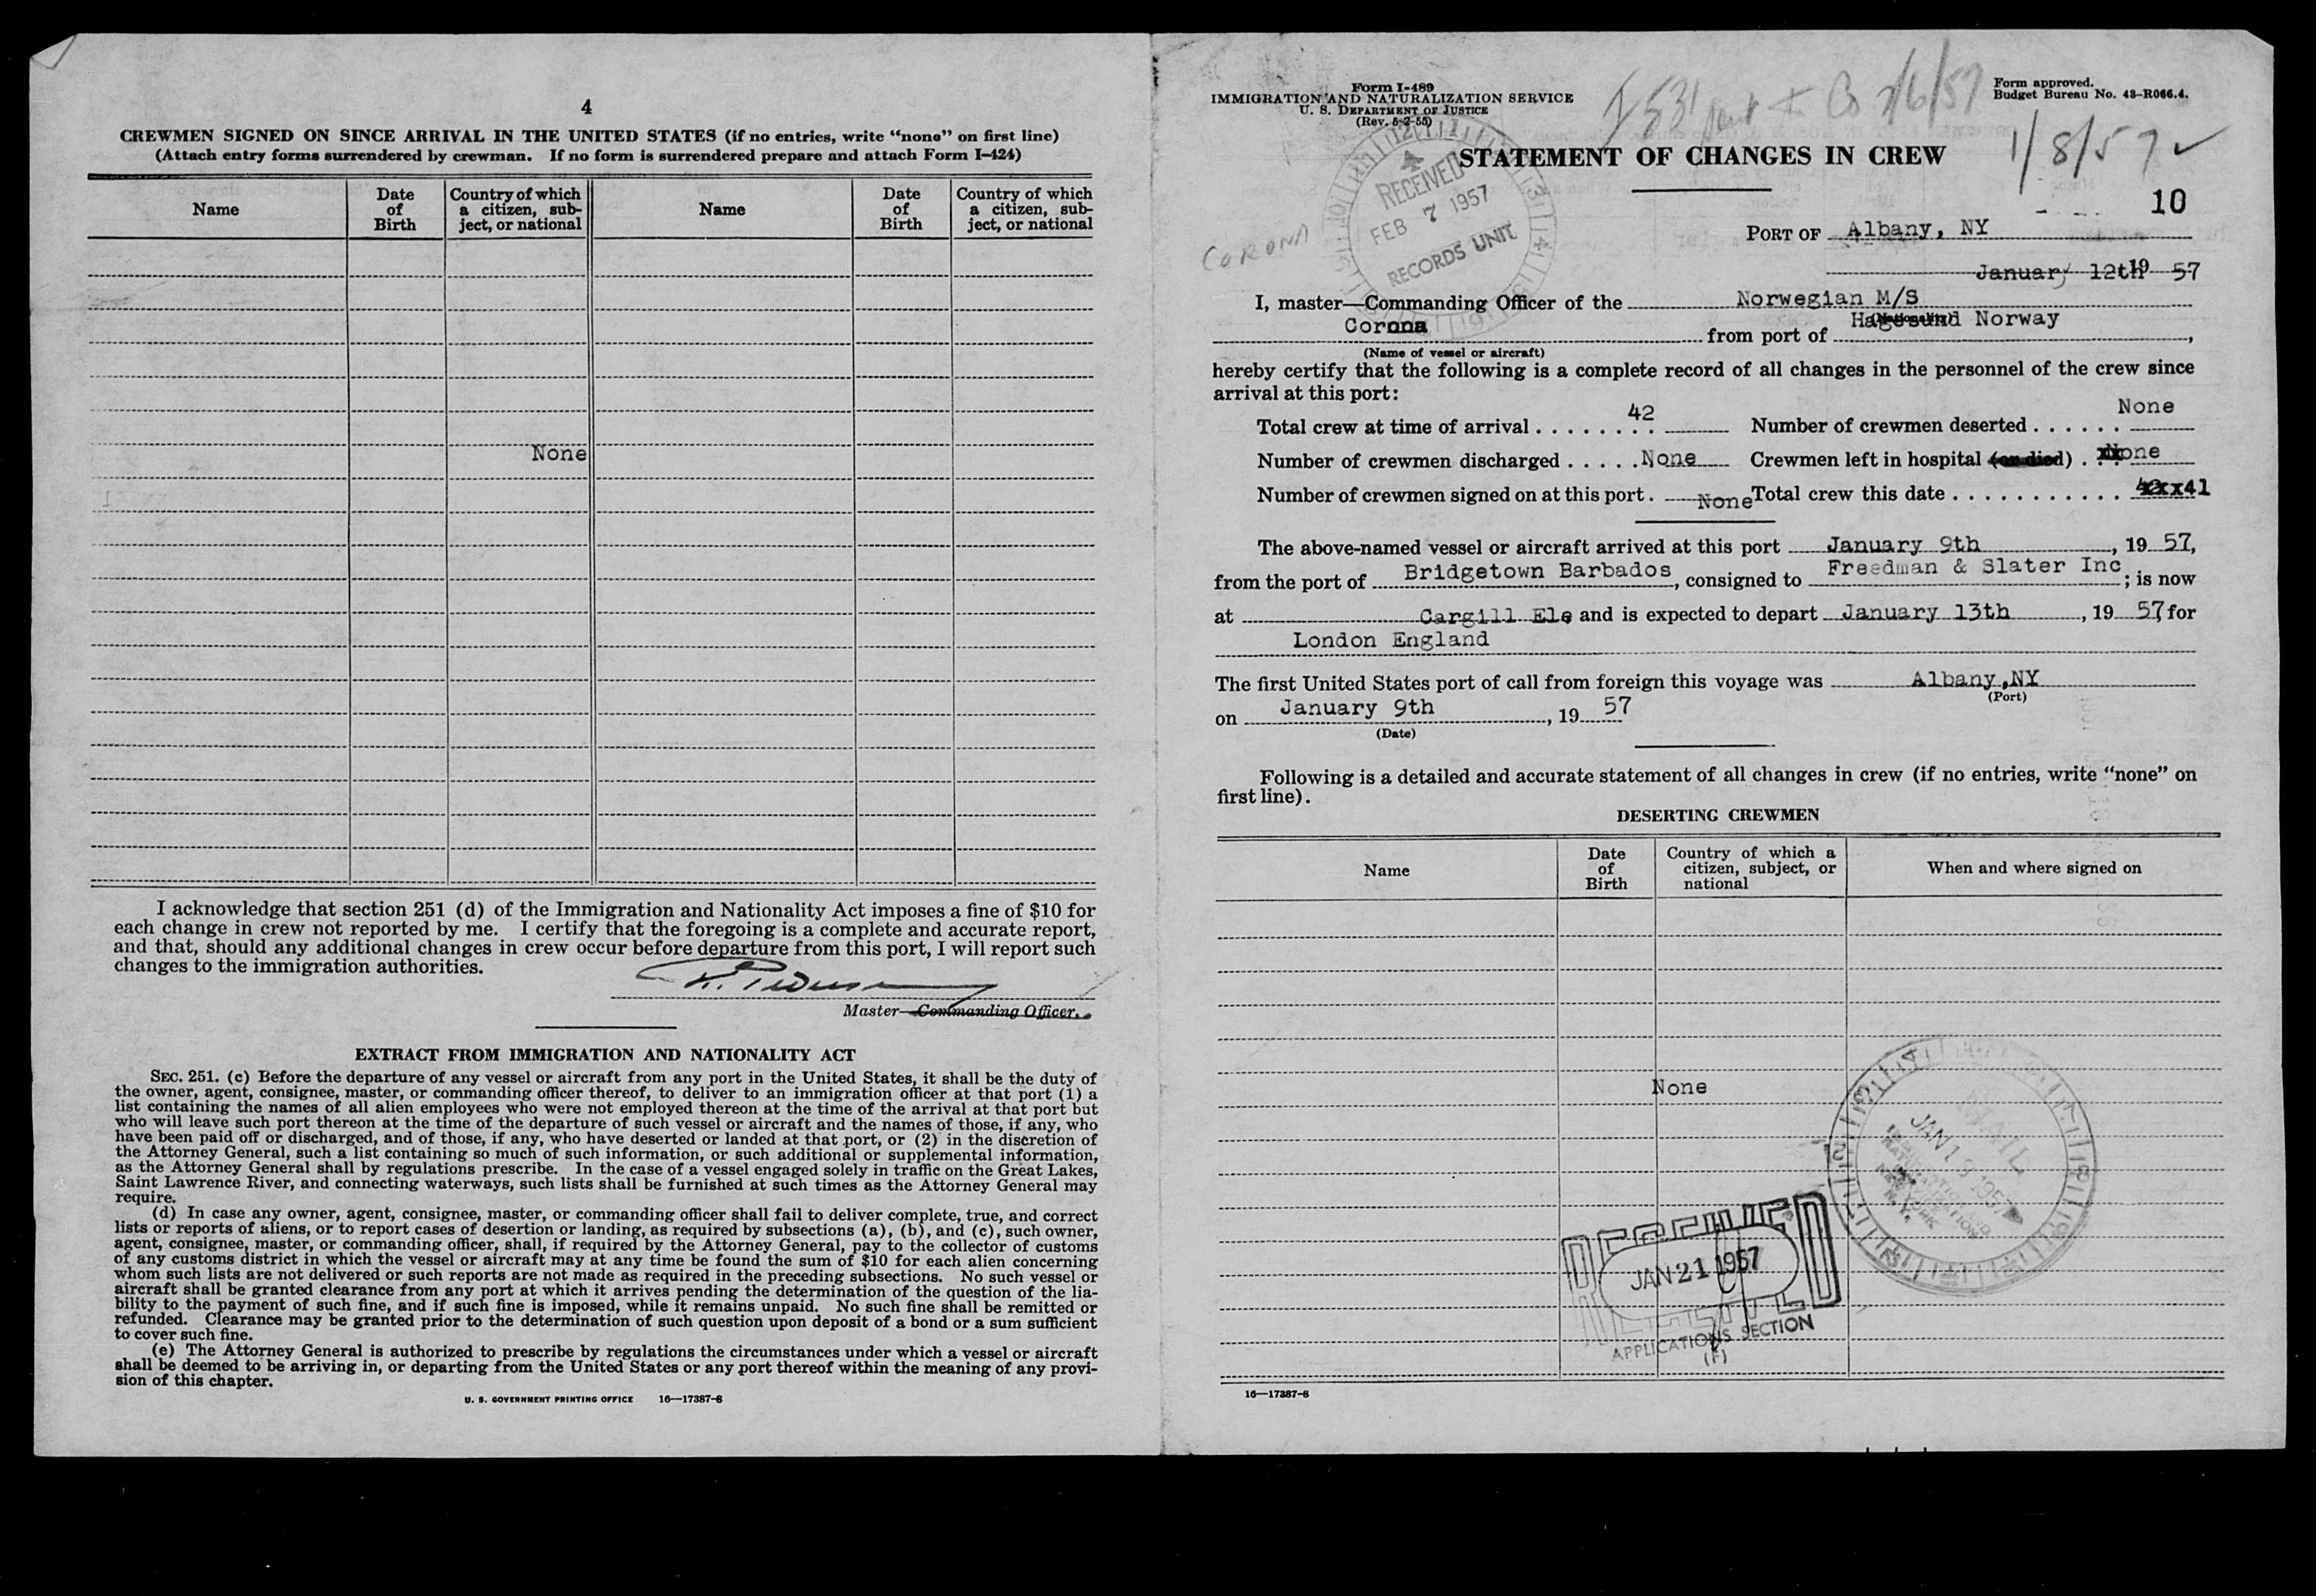 4
CREWMEN SIGNED ON SINCE ARRIVAL IN THE UNITED STATES (if no entries, write “none” on first line)
(Attach entry forms surrendered by crewman. If no form is surrendered prepare and attach Form I—424)
Name
Date of Birth
Country of which a citizen, sub-ject, or national
Name
Date of Birth
Country of which a citizen, sub-ject, or national
None
I acknowledge that section 251 (d) of the Immigration and Nationality Act imposes a fine of $10 for
each change in crew not reported by me. I certify that the foregoing is a complete and accurate report,
and that, should any additional changes in crew occur before departure from this port, I will report such
changes to the immigration authorities.
Master—Commanding Officer.
EXTRACT FROM IMMIGRATION AND NATIONALITY ACT
SEC. 251. (c) Before the departure of any vessel or aircraft from any port in the United States, it shall be the duty of
the owner, agent, consignee, master, or commanding officer thereof, to deliver to an immigration officer at that port (1) a
list containing the names of all alien employees who were not employed thereon at the time of the arrival at that port but
who will leave such port thereon at the time of the departure of such vessel or aircraft and the names of those, if any, who
have been paid off or discharged, and of those, if any, who have deserted or landed at that port, or (2) in the discretion of
the Attorney General, such a list containing so much of such information, or such additional or supplemental information,
as the Attorney General shall by regulations prescribe. In the case of a vessel engaged solely in traffic on the Great Lakes,
Saint Lawrence River, and connecting waterways, such lists shall be furnished at such times as the Attorney General may
require.
(d) In case any owner, agent, consignee, master, or commanding officer shall fail to deliver complete, true, and correct
lists or reports of aliens, or to report cases of desertion or landing, as required by subsections (a), (b), and (c), such owner,
agent, consignee, master, or commanding officer, shall, if required by the Attorney General, pay to the collector of customs
of any customs district in which the vessel or aircraft may at any time be found the sum of $10 for each alien concerning
whom such lists are not delivered or such reports are not made as required in the preceding subsections. No such vessel or
aircraft shall be granted clearance from any port at which it arrives pending the determination of the question of the lia-
bility to the payment of such fine, and if such fine is imposed, while it remains unpaid. No such fine shall be remitted or
refunded. Clearance may be granted prior to the determination of such question upon deposit of a bond or a sum sufficient
to cover such fine.
(e) The Attorney General is authorized to prescribe by regulations the circumstances under which a vessel or aircraft
shall be deemed to be arriving in, or departing from the United States or any port thereof within the meaning of any provi-
sion of this chapter.
U. S. GOVERNMENT PRINTING OFFICE 16—17387-8
Form I-489
IMMIGRATION AND NATURALIZATION SERVICE
U. S. DEPARTMENT OF JUSTICE
(Rev. 5-2-55)
Form approved.
Budget Bureau No. 43-R066.4.
STATEMENT OF CHANGES IN CREW
1/8/57
10
RECEIVED
FEB 7 1957
RECORDS UNIT
CORONA
PORT OF Albany, NY
January 12th 19 57
I, master—Commanding Officer of the Norwegian M/S
(Nationality)
Corona from port of Hagesund Norway,
(Name of vessel or aircraft)
hereby certify that the following is a complete record of all changes in the personnel of the crew since
arrival at this port:
Total crew at time of arrival . . . . . . . . 42 Number of crewmen deserted . . . . . . None
Number of crewmen discharged . . . . . None Crewmen left in hospital (or died) . . . None
Number of crewmen signed on at this port . None Total crew this date . . . . . . . . . . . 41
The above-named vessel or aircraft arrived at this port January 9th, 19 57,
from the port of Bridgetown Barbados, consigned to Freedman & Slater Inc; is now
at Cargill Ele and is expected to depart January 13th, 19 57, for
London England
The first United States port of call from foreign this voyage was Albany, NY
(Port)
on January 9th, 19 57
(Date)
Following is a detailed and accurate statement of all changes in crew (if no entries, write “none” on
first line).
DESERTING CREWMEN
Name
Date of Birth
Country of which a citizen, subject, or national
When and where signed on
None
MAIL
JAN 1 1957
NEW YORK
N.Y.
RECEIVED
JAN 21 1957
APPLICATIONS SECTION
(F)
16—17387-8